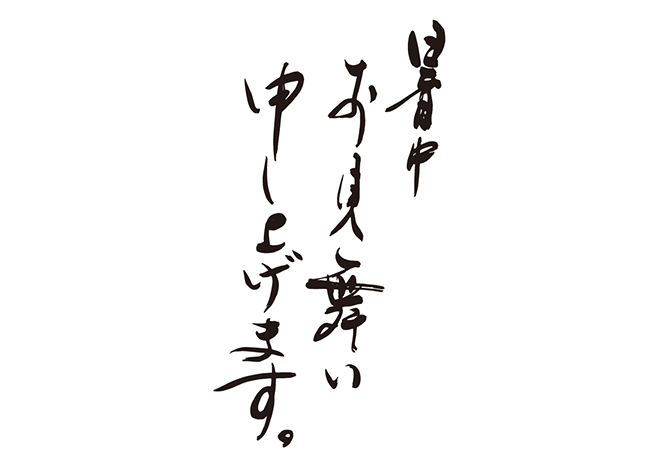 暑中
お見舞い
申し上げます。